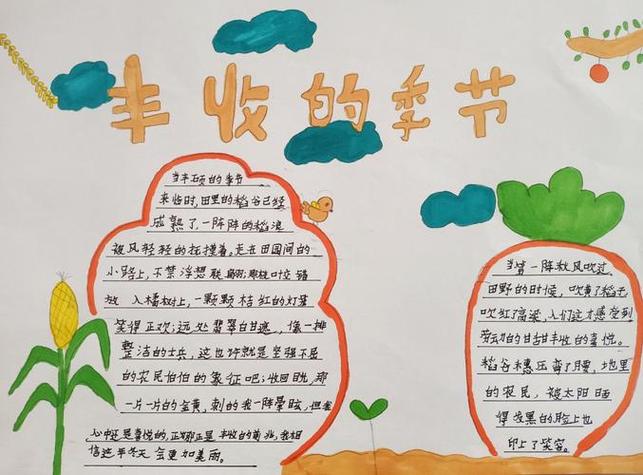 丰收的季节
当丰硕的季节
来临时,田里的稻谷已经
成熟了一阵阵的稻浪
被风轻轻的抚摸着。走在田园间的
小路上,不禁浮想联翩:
放入橘树上,一颗颗桔红的灯笼
笑得正欢;远处翡翠白甘遮,像一排
整洁的士兵,这也许就是坚强不屈
的农民伯伯的象征吧;收回目光,那
一片一片的金黄,刺的我一阵晕眩,但我
心中是喜悦的,正丰收的我相
信这年冬天会更加美丽。
当第一阵秋风吹过
田野的时候,吹黄了稻子
吹红了高粱,人们这才感受到
劳动的甘甜丰收的喜悦。
稻谷穗压弯了腰,地里
的农民,被太阳晒
得发黑的脸上也
印上了笑容。